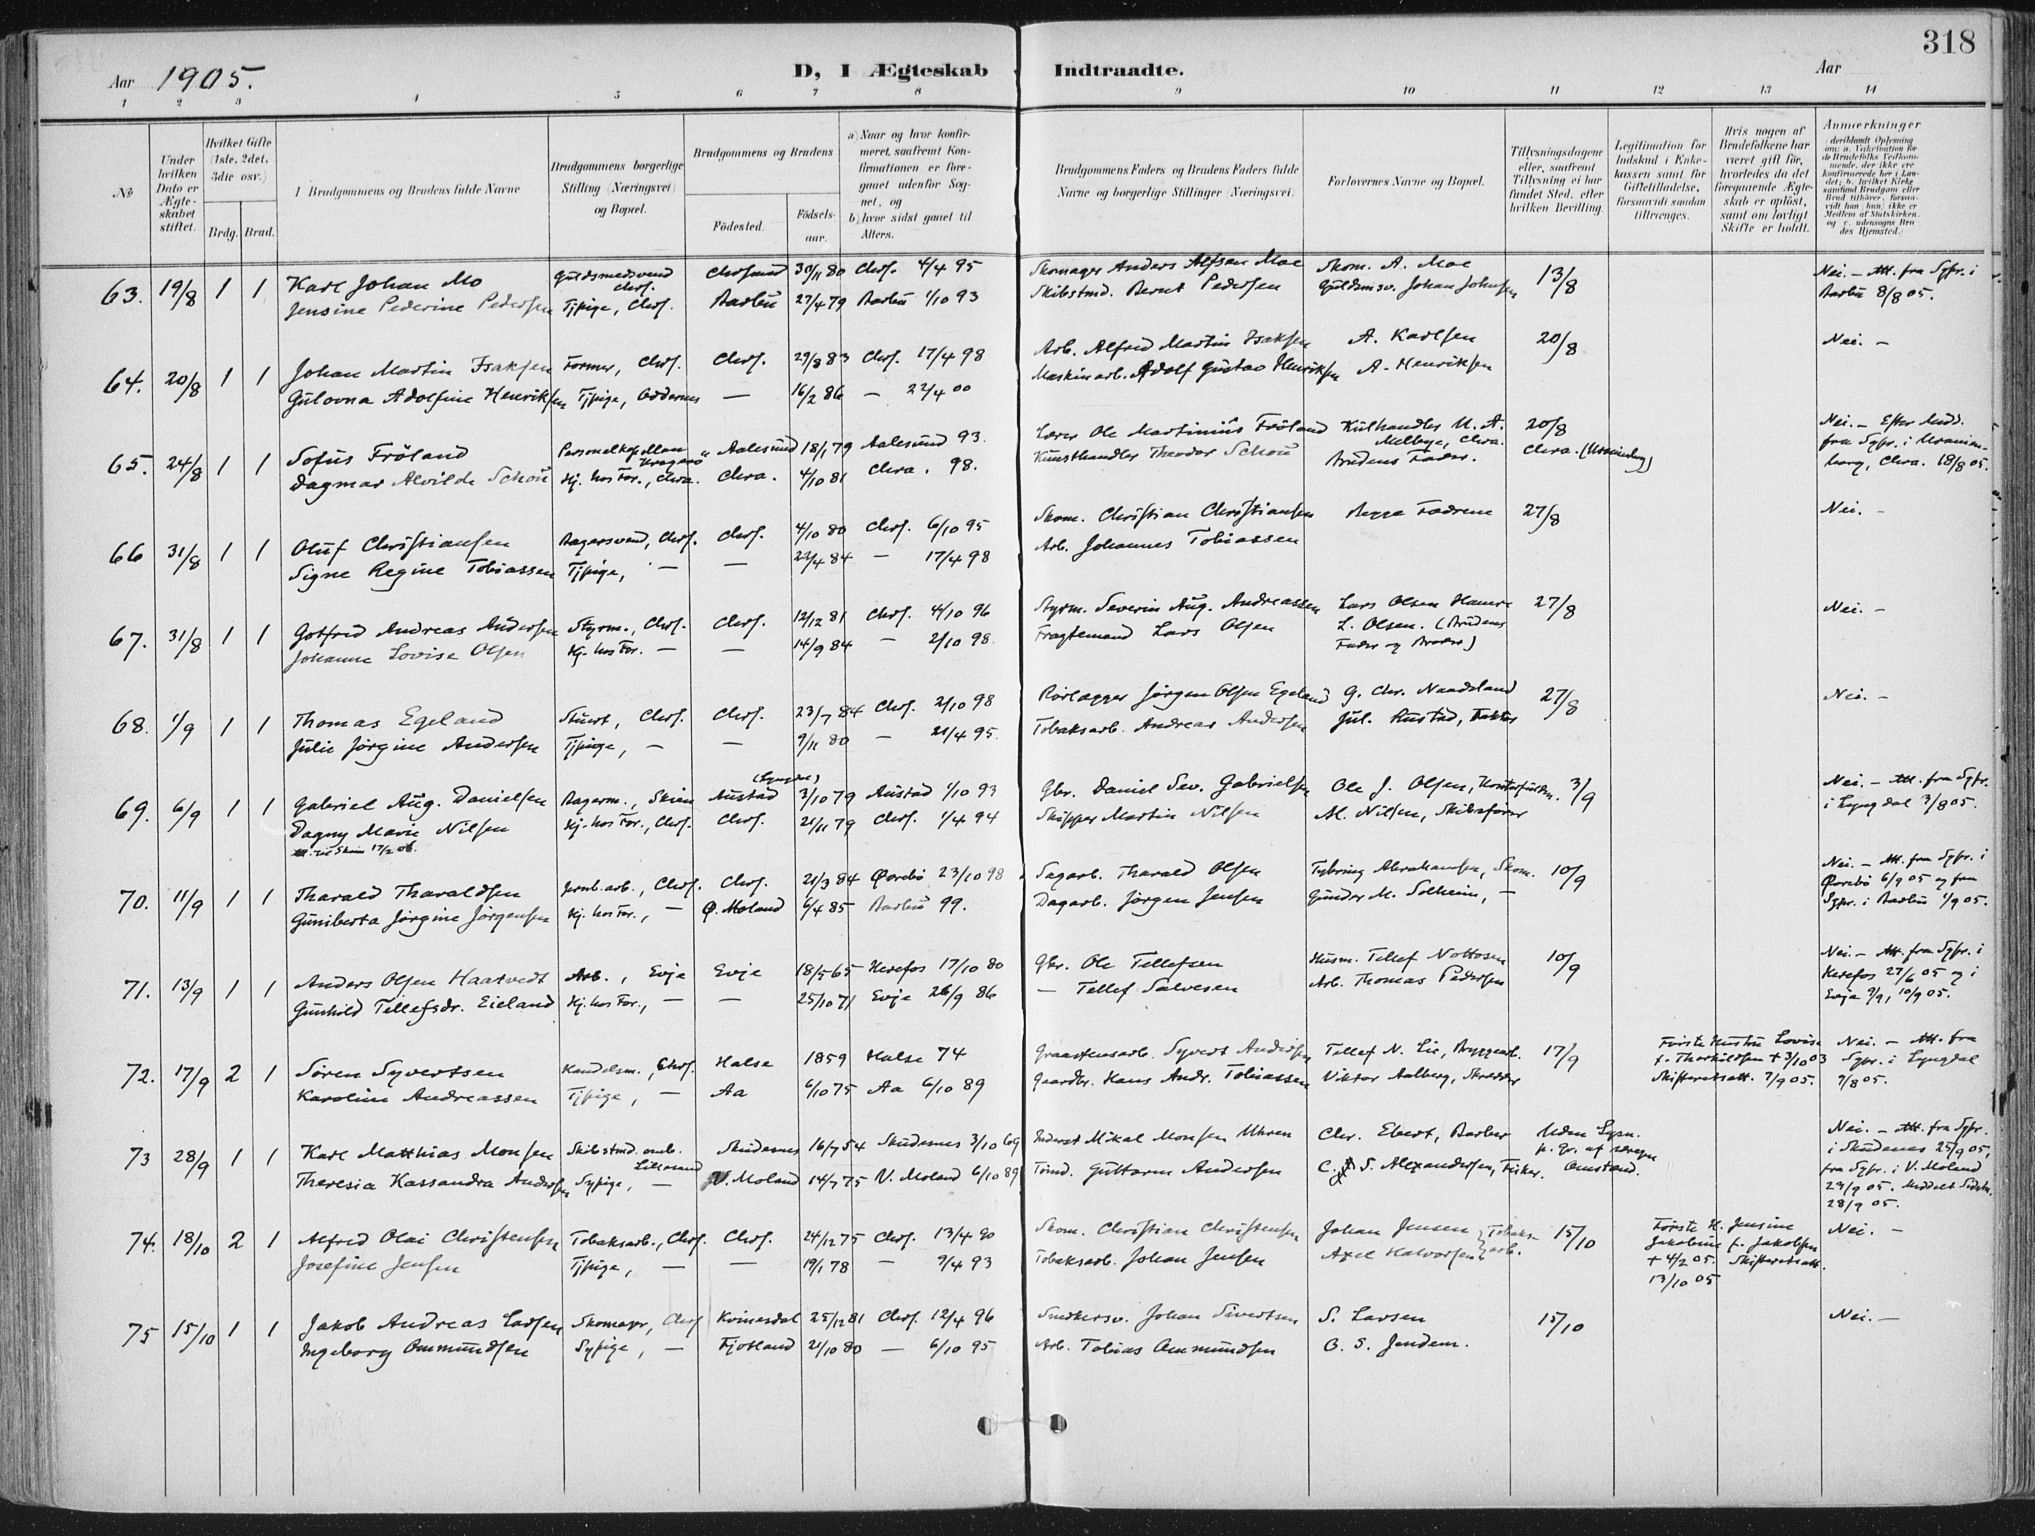 318
Aar 1905. D, I Ægteskab Indtraadte. Aar
1 2 3 4 5 6 7 8 9 10 11 12 13 14
No
Under hvilken Dato er Ægteskabet stiftet.
Hvilket Gifte (1ste, 2det, 3die osv.)
Brdg. Brud.
1 Brudgommens og Brudens fulde Navne
Brudgommens borgerlige Stilling (Næringsvei) og Bopæl.
Brudgommens og Brudens
Fødested.
Fødselsaar.
a) Naar og hvor konfirmeret, saafremt Konfirmationen er foregaaet udenfor Sognet, og
b) hvor sidst gaaet til Alters.
Brudgommens Faders og Brudens Faders fulde Navne og borgerlige Stillinger (Næringsvei.
Forlovernes Navne og Bopæl.
Tillysningsdagene eller, saafremt Tillysning ei har fundet Sted, efter hvilken Bevilling.
Legitimation for Indskud i Enkekassen samt for Giftetilladelse, forsaavidt saadan tiltrænges.
Hvis nogen af Brudefolkene har været gift før, hvorledes da det foregaaende Ægteskab er opløst, samt om lovligt Skifte er holdt.
Anmærkninger
63. 19/8 1 1 Karl Johan Mo Guldsmedsvend Chrs. Chrssand 30/11 80 Chrs. 4/4 95 Skomager Anders Alfsen Moe Skom. A. Moe 13/8 Nei. – Att. fra Sgpr. i
Jensine Pederine Pedersen Tjpige, Chrs. Barbu 27/4 79 Barbu 1/10 93 Skibstmd. Bernt Pedersen Guldsmsv. Johan Johnsen Barbu 8/8 05.
64. 20/8 1 1 Johan Martin Isaksen Former, Chrs. Chrs. 29/3 83 Chrs. 17/4 98 Arb. Alfred Martin Isaksen A. Karlsen 20/8 Nei. –
Gulovna Adolfine Henriksen Tjpige, Oddernes — 16/2 86 — 22/4 00 Maskinarb. Adolf Gustav Henriksen A. Henriksen
65. 24/8 1 1 Sofus Fröland Personelkapellan Kragerø Aalesund 18/1 79 Aalesund 93. Lærer Ole Martinius Fröland Kulhandler M. A. Melbye, Chra. 20/8 Nei. – Efter Anm.
Dagmar Alvilde Schou Hj. hos For., Chra. Chra. 4/10 81 Chra. 98. Kunsthandler Theodor Schou Brudens Fader. Chra. (Uranienborg) fra Sgpr. i Uranienborg, Chra. 18/8 05.
66 31/8 1 1 Oluf Christiansen Bagersvend, Chrs. Chrs. 4/10 80 Chrs. 6/10 95 Skom. Christian Christiansen Begge Fædrene 27/8 Nei. –
Signe Regine Tobiassen Tjpige, — — 22/4 84 — 17/4 98 Arb. Johannes Tobiassen
67. 31/8 1 1 Gotfred Andreas Andersen Styrm., Chrs. Chrs. 12/12 81 Chrs. 4/10 96 Styrm. Severin Aug. Andreassen Lars Olsen Hamre 27/8 Nei. –
Johanne Lovise Olsen Hj. hos For. — — 14/9 84 — 2/10 98. Fragtemand Lars Olsen L. Olsen. (Brudens
Fader og Broder)
68. 1/9 1 1 Thomas Egeland Stuert, Chrs. Chrs. 23/7 84 Chrs. 2/10 98 Rörlægger Jörgen Olsen Egeland G. Chr. Naadeland 27/8 Nei. –
Julie Jörgine Andersen Tjpige, — — 9/11 80 — 21/4 95. Tobaksarb. Andreas Andersen Jul. Rustad, Faktor
69. 6/9 1 1 Gabriel Aug. Danielsen Bagerm., Skien Austad (Lyngdal) 3/10 79 Austad 1/10 93 Gbr. Daniel Sev. Gabrielsen Ole J. Olsen, 3/9 Nei. – Att. fra Sgpr.
Dagny Marie Nilsen Hj. hos For., Chrs. Chrs. 21/11 79 Chrs. 1/4 94 Skipper Martin Nilsen Al. Nilsen, Skibsfører i Lyngdal 3/8 05.
Att. til Skien 17/2 06.
70. 11/9 1 1 Tharald Tharaldsen Jernb.arb., Chrs. Chrs. 21/3 84 Øvrebø 23/10 98 Sagarb. Tharald Olsen Tybring Abrahamsen, Skom. 10/9 Nei. – Att. fra Sgpr. i
Guniberta Jörgine Jörgensen Hj. hos For., — Ø. Moland 6/4 85 Barbu 99. Dagarb. Jörgen Jensen Gunder M. Solheim, — Øvrebø 6/9 05 og fra
Sgpr. i Barbu 1/9 05.
71. 13/9 1 1 Anders Olsen Haatvedt Arb., Evje Evje 18/5 65 Herefos 17/10 80 Gbr. Ole Tellefsen Husm. Tellef Nottosen 10/9 Nei – Att. fra Sgpr. i
Gunhild Tellefsdr. Eieland Hj. hos For., — — 25/10 71 Evje 26/9 86 — Tellef Salvesen Arb. Thomas Pedersen Herefos 27/6 05 og i
Evje 9/9, 10/9 05.
72. 17/9 2 1 Sören Syvertsen Handelsm., Chrs. Halse 1859 Halse 74 Graastensarb. Syvert Andersen Tellef N. Lie, Bryggearb. 17/9 Förste Hustru Lovise Nei. – Att. fra
Karoline Andreassen Tjpige, — Aa 6/10 75 Aa 6/10 89 Gaardbr. Hans Andr. Tobiassen Viktor Aalberg, Skredder f. Thorkildsen + 3/10 03 Sgpr. i Lyngdal
Skifteretsatt. 7/9 05. 9/8 05.
73 28/9 1 1 Karl Matthias Monsen Skibstmd. omb. Lillesand Skudesnes 16/7 54 Skudesnes 3/10 69 Inderst Mikal Monsen Uhren Chr. Ebert, Barber Uden Lysn. Nei. – Att. fra Sgpr.
Theresia Kassandra Andersen Sypige, — V. Moland 14/7 75 V. Moland 6/10 89 Tömd. Guttorm Andersen C. S. Alexandersen, Fisker. p. gr. af særegne Omstænd. i Skudenes 25/9 05,
fra Sgpr. i V. Moland
23/9 05. Meddelt
28/9 05.
74. 18/10 2 1 Alfred Olai Christensen Tobaksarb., Chrs. Chrs. 24/12 75 Chrs. 13/4 90 Skom. Christian Christensen Johan Jensen } Tobaksarb. 15/10 Förste H. Jensine Nei. –
Josefine Jensen Tjpige, — — 19/1 78 — 9/4 93 Tobaksarb. Johan Jensen Axel Halvorsen Jakobine f. Jakobsen
+ 4/2 05. Skifteretsatt.
13/10 05
75 15/10 1 1 Jakob Andreas Larsen Skomager, Chrs Kvinesdal 25/12 81 Chrs. 12/4 96 Snedkersv. Johan Sivertsen S. Larsen 15/10 Nei. –
Ingeborg Ommundsen Sypige, — Fjotland 21/10 80 — 6/10 95 Arb. Tobias Ommundsen O. S. Jendem.